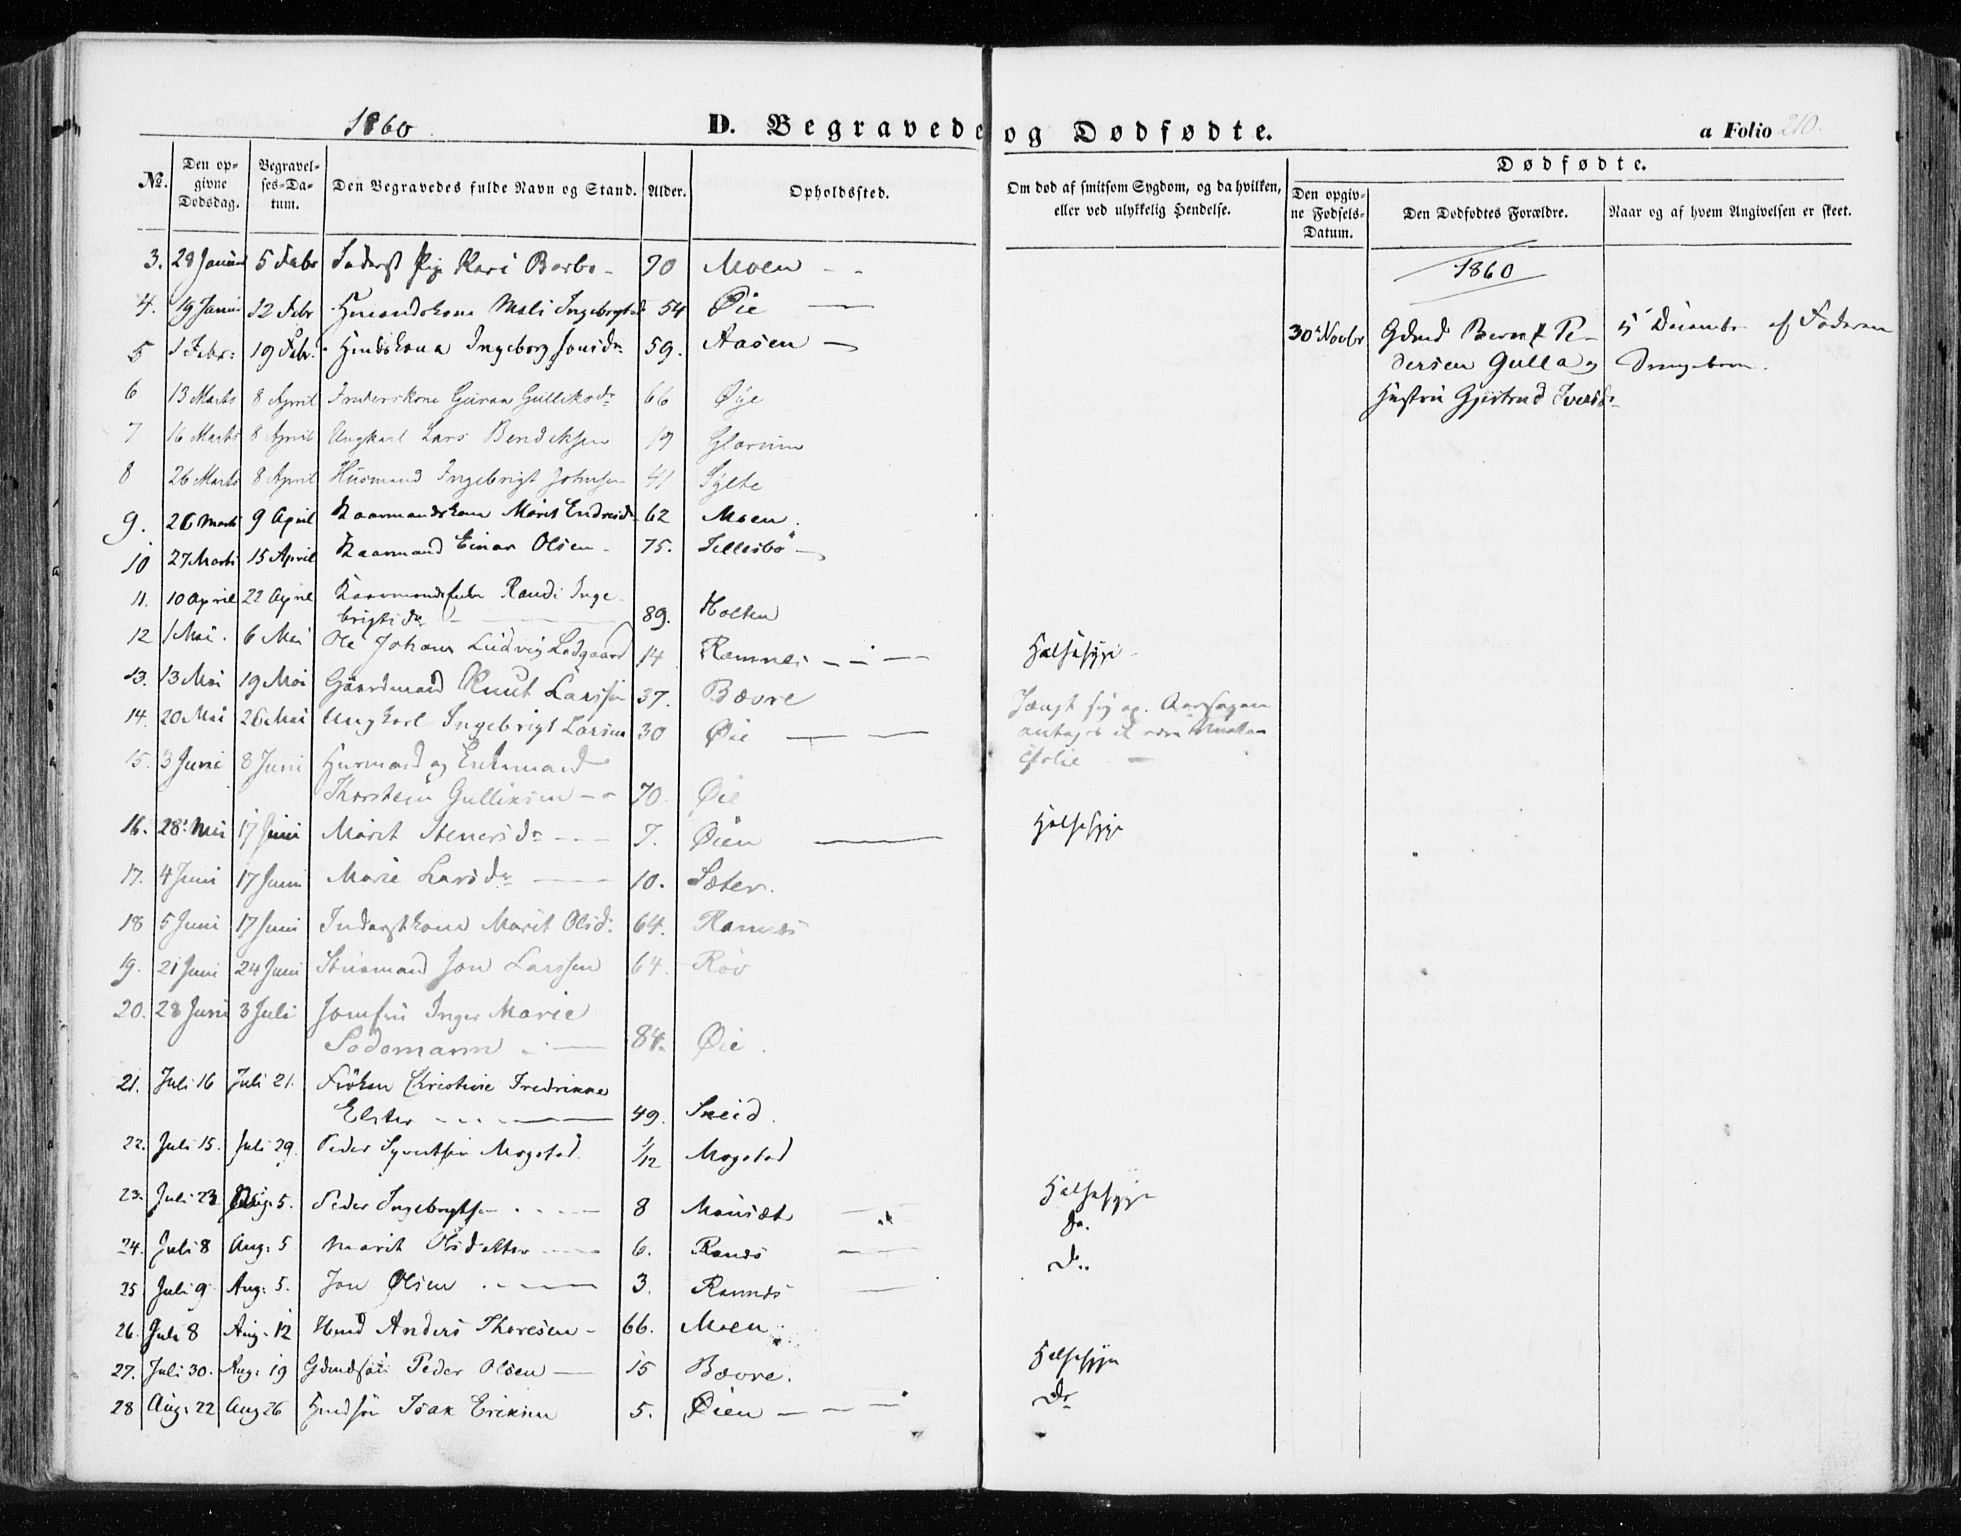 1860 D. Begravede og Dødfødte. a Folio 210.
Dødfødte.
No. Den opgivne Dødsdag. Begravelses-Datum. Den Begravedes fulde Navn og Stand. Alder. Opholdssted. Om død af smitsom Sygdom, og da hvilken, eller ved ulykkelig Hendelse. Den opgivne Fødsels-Datum. Den Dødfødtes Forældre. Naar og af hvem Angivelsen er skeet.
3. 28 5 Febr Pige Kari 70 Moen
4. 19 12 Febr Mali 54 Øie
5 1 Febr: 19 Febr. Ingeborg Jonsdr 59. Aasen
6 13 Marts 8 April Guroa Gulliksdr 66 Øye
7 16 Marts 8 April Ungkarl Lars Bendiksen 19 Glærum
8 26 Marts 8 April Husmand Ingebrigt Johnsen 41 Sylte
9. 26 Marts 9 April Kaarmandskone Marit Endresdr 62 Moen.
10 27 Marts 15 April Kaarmand Einar Olsen 75. Settesbø
11. 10 April 22 April Randi Inge
brigtsdr 89. Holten
12 1 Mai. 6 Mai Ole Johan Ludvig Lodgaard 14 Ramnes Halssyge
13. 13 Mai 19 Mai Gaardmand Knut Larssen 37. Bævre
14. 20 Mai 26 Mai Ungkarl Ingebrigt Larsen 30 Øie Hængt sig op. Aarsagen
antages at være
15. 3 Juni 8 Juni Husmand og Enkemand
Thorstein Gulliksen 70. Øie
16. 28 Mai 17 Juni Marit Stenersdr 7. Øien Halssyge
17. 4 Juni 17 Juni Marie Larsdr 10. Sæter.
18 5 Juni 17 Juni Inderstkone Marit Olsd. 64. Ramnes
19. 21 Juni 24 Juni Husmand Jon Larssen 64. Røv
20. 28 Juni 3 Juli Jomfru Inger Marie
Sodemann 84. Øie.
21. Juli 16 Juli 21. Frøken Christine Fredrikke
Elster 49. Sneid.
22. Juli 15. Juli 29. Peder Syvertsen Mogstad. 1/12 Mogstad
23. Juli 23 Aug. 5. Peder Ingebrigtsen 8 Mausæt Halssyge
24. Juli 8 Aug: 5 Marit Olsdatter 6. Ranæs Do.
25 Juli 9 Aug: 5. Jon Olsen 3. Ramnæs Do.
26. Juli 8 Aug. 12 Hmd Anders Thoresen 66. Moen
27. Juli 30. Aug: 19 Gdmdsøn Peder Olsen 15 Bævre. Halssyge
28 Aug: 22 Aug 26 Hmdsøn Isak Eriksen 5. Øien Do
1860
30 Novbr Gdmd Bernt Pe- 5 December af Faderen
dersen Gulla og
Hustru Gjertrud Iversdr